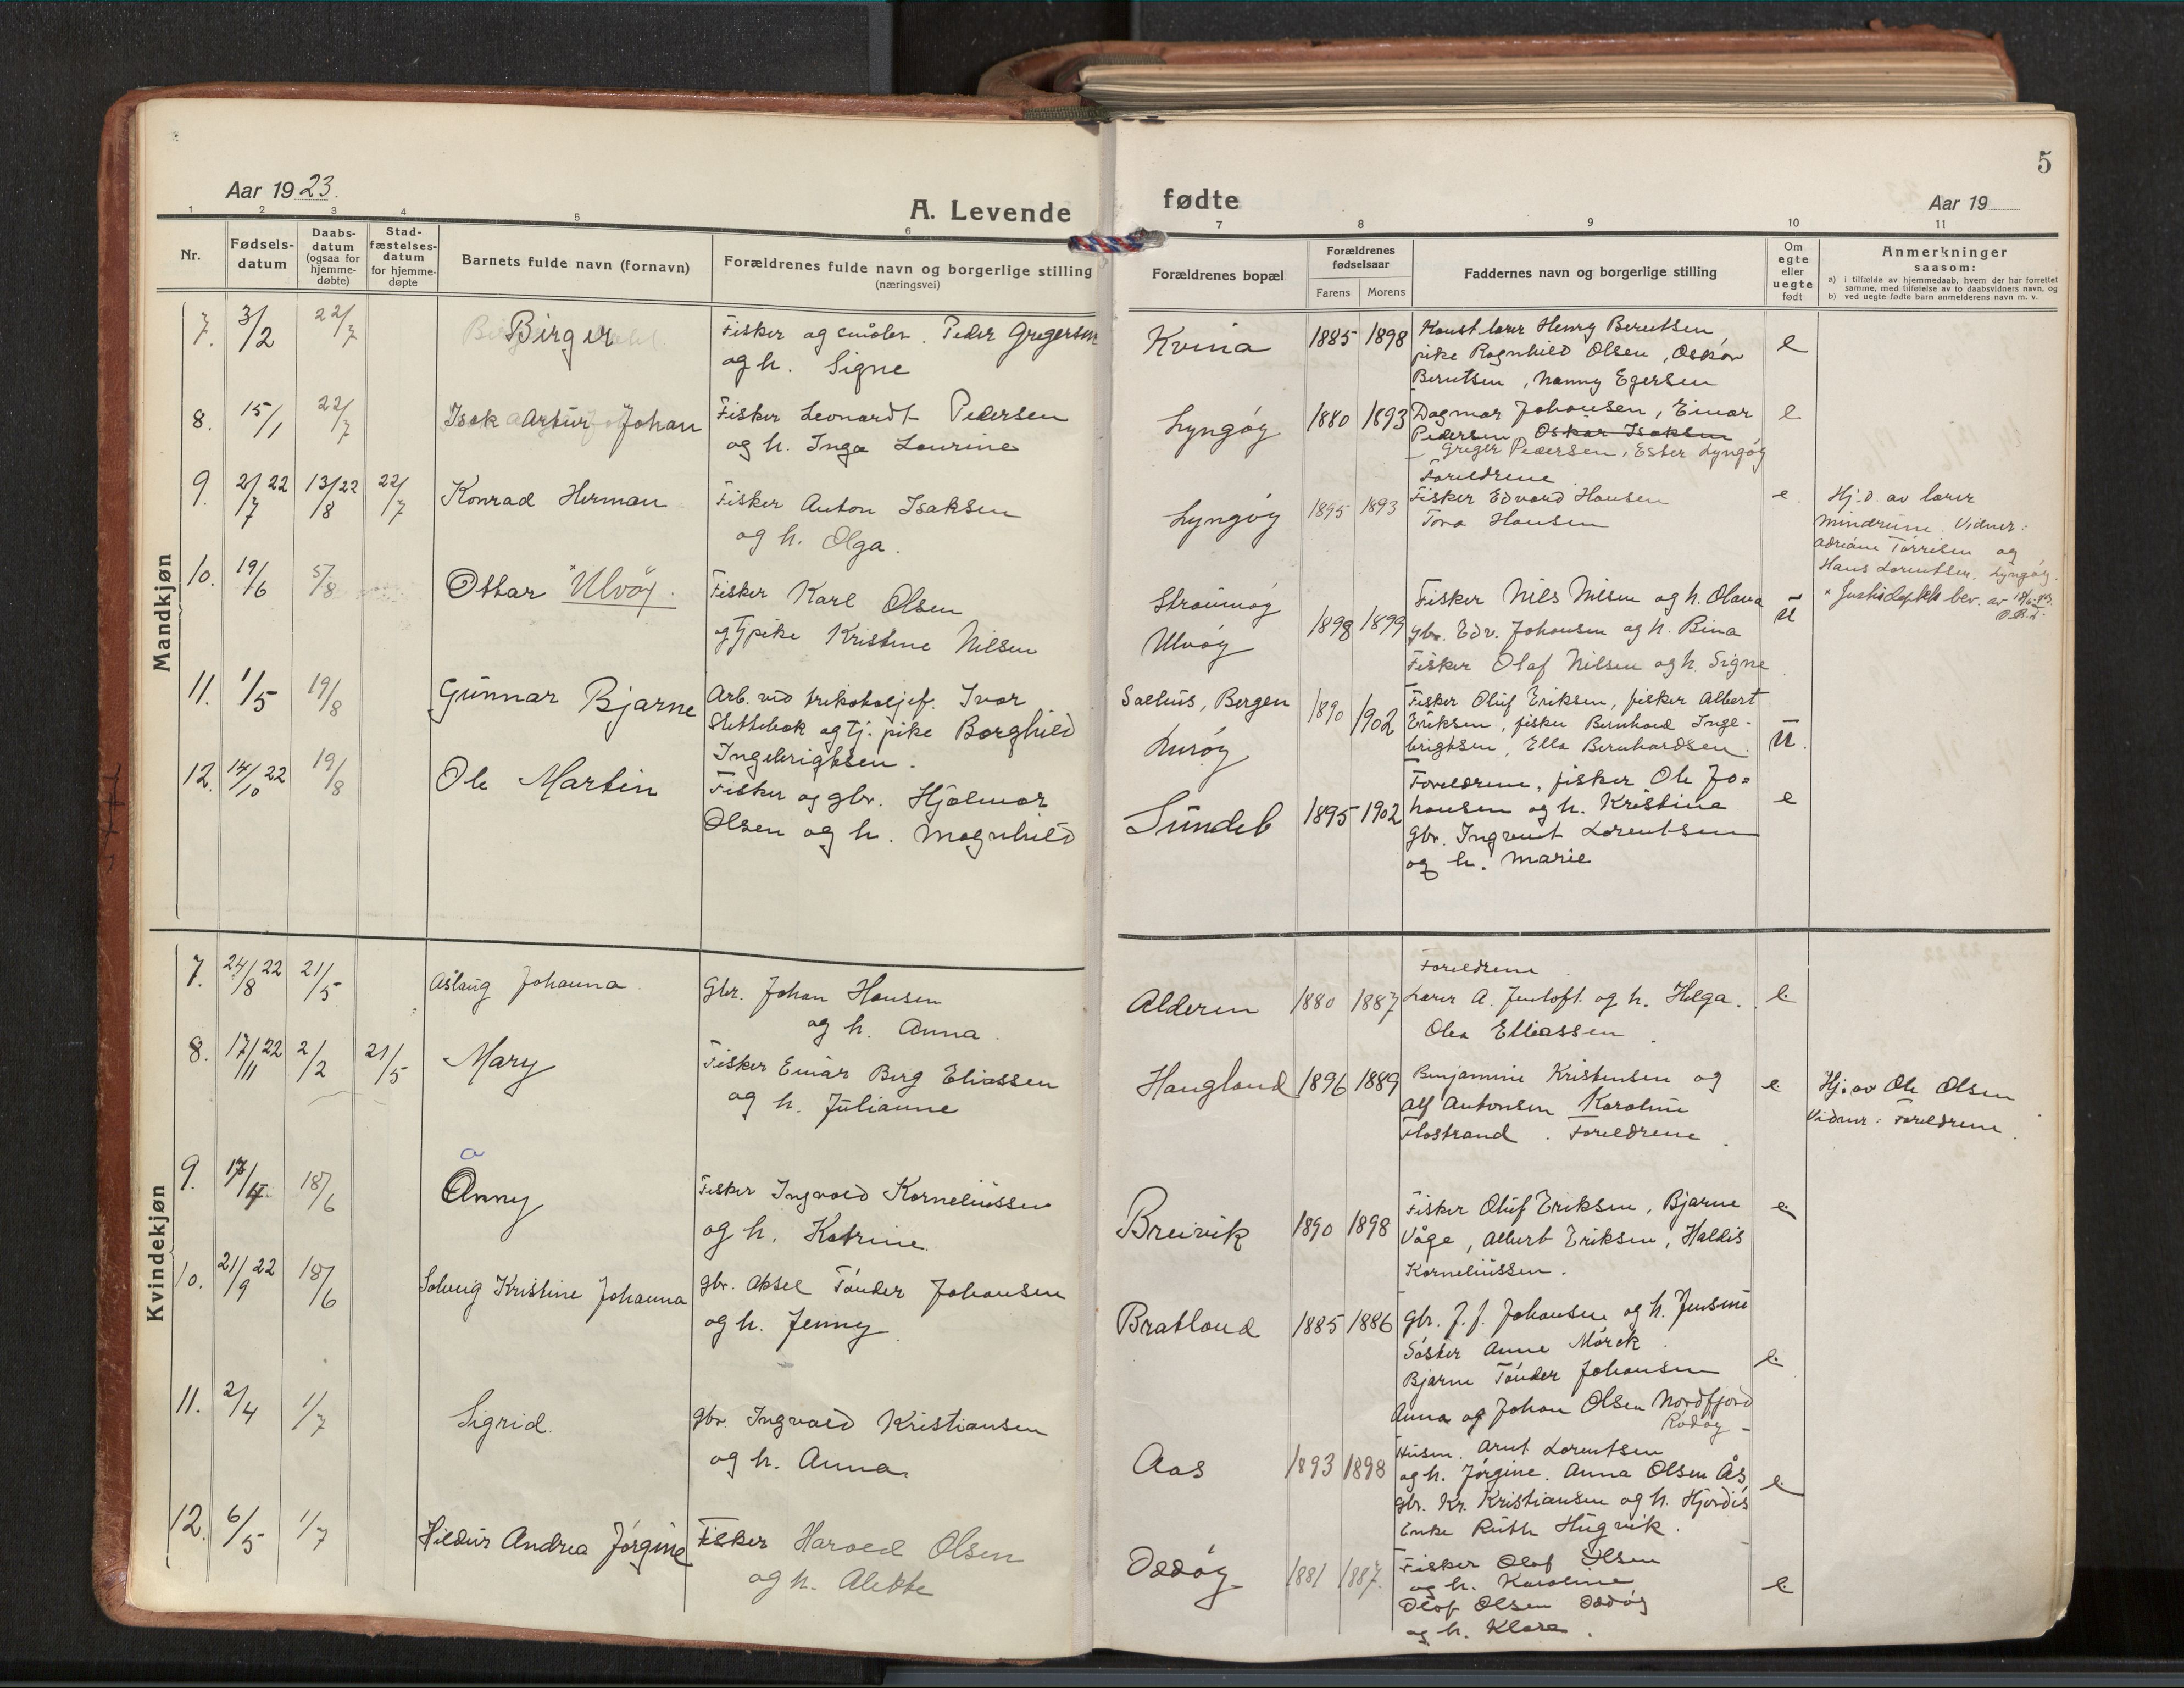 Aar 1923.
A. Levende
1 2 3 4 5 6
Nr.
Fødsels-
datum
Daabs-
datum
(ogsaa for
hjemme-
døbte)
Stad-
fæstelses-
datum
for hjemme-
døpte
Barnets fulde navn (fornavn)
Forældrenes fulde navn og borgerlige stilling
(næringsvei)
Mandkjøn
7. 3/2 22/7 Birger Fisker og Peder Gregersen
og h. Signe
8. 15/1 22/7 Isak Artur Johan Fisker Leonardt Pedersen
og h. Inga Laurine
9. 2/7 22 13/8 22 22/7 Konrad Herman Fisker Anton Isaksen
og h. Olga.
10. 19/6 5/8 Ottar "Ulvøy". Fisker Karl Olsen
og Tjpike Kristine Nilsen
11. 1/5 19/8 Gunnar Bjarne Arb. ved trikotasjef. Ivar
Slettebak og tj. pike Borghild
Ingebrigtsen.
12. 14/10 22 19/8 Ole Martin Fisker og gbr. Hjalmar
Olsen og h. Magnhild
Kvindekjøn
7. 24/8 22 21/5 Aslaug Johanna. Gbr. Johan Hansen
og h. Anna.
8. 17/11 22 2/2 21/5 Mary Fisker Einar Berg Eliassen
og h. Julianne
9. 17/4 18/6 Anny Fisker Ingvald Korneliussen
og h. Katrine.
10. 21/9 22 18/6 Solveig Kristine Johanna gbr. Aksel Tønder Johansen
og h. Jenny.
11. 2/4 1/7 Sigrid. gbr. Ingvald Kristiansen
og h. Anna.
12. 6/5 1/7 Hildur Andrea Jørgine Fisker Harald Olsen
og h. Alette
5
fødte
Aar 19
7 8 9 10 11
Forældrenes bopæl
Forældrenes
fødselsaar
Farens Morens
Faddernes navn og borgerlige stilling
Om
egte
eller
uegte
født
Anmerkninger
saasom:
a) i tilfælde av hjemmedaab, hvem der har forrettet
samme, med tilføielse av to daabsvidners navn, og
b) ved uegte fødte barn anmelderens navn m. v.
Kvina 1885 1898 Konst. lærer Henry Berntsen e
pike Ragnhild Olsen, Oskar
Berntsen, Nanny Egersen
Lyngøy 1880 1893 Dagmar Johansen, Einar e
Pedersen, Oskar Isaksen
Greger Pedersen, Ester Lyngøy
Foreldrene
Lyngøy 1895 1893 Fisker Edvard Hansen e.
Tora Hansen
Hj.d. av lærer
Mindrum. Vidner:
Adriane Tørrisen og
Hans Lorentsen. Lyngøy.
Straumøy
Ulvøy
1898 1899 Fisker Nils Nilsen og h. Olava u
gbr. Edv. Johansen og h. Bina
Fisker Olaf Nilsen og h. Signe
Salhus, Bergen
Lurøy
1890 1902 Fisker Oluf Eriksen, fisker Albert
Eriksen, fisker Bernhard Inge-
brigtsen, Ella Bernhardsen. u.
Sundet 1895 1902 Foreldrene, fisker Ole Jo= e
hansen og h. Kristina
Gbr. Ingvart Lorentsen
og h. Marie
Foreldrene
Alderen 1880 1887 Lærer A. Jentoft og h. Helga. e.
Olea Eliassen.
Haugland 1896 1889 Benjamine Kristensen og e
Alf Antonsen Karoline
Flostrand. Foreldrene.
Hj. av Ole Olsen
Vidner: Foreldrene.
Breivik 1890 1898 Fisker Oluf Eriksen, Bjarne e.
Våge, Albert Eriksen, Haldis
Korneliussen.
Bratland 1885 1886 gbr. J. J. Johansen og h. Jensine
Søster Anne Mørck.
Bjarne Tønder Johansen e.
Anna og Johan Olsen Nordfjord
Rødøy
Aas 1893 1898 Husm. Arnt Lorentsen
og h. Jørgine. Anna Olsen Ås e.
gbr. Kr. Kristiansen og h. Hjørdis
Enke Ruth Hugvik.
Oddøy 1881 1887. Fisker Olaf Olsen e.
og h. Karoline
Olaf Olsen Oddøy
og h. Klara.